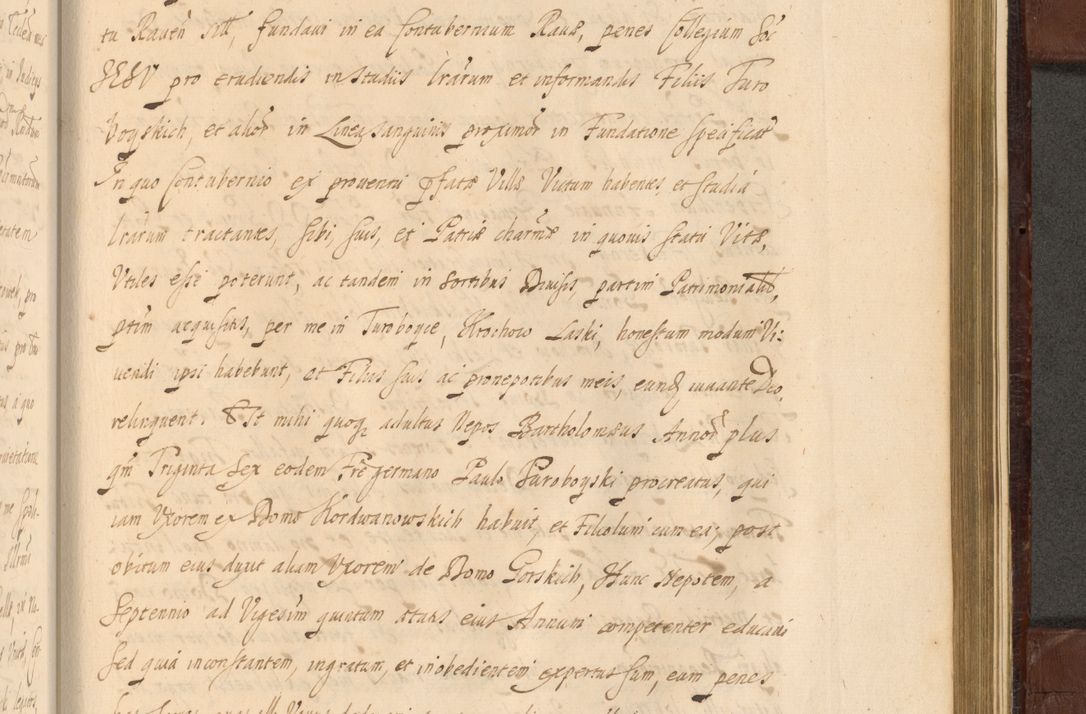 tu Rauen̄ sttt, fundaui in ea Contubernium Rauæ, penes Collegium Soc̄
JESV pro erudiendis in studiis Lr̄arum et informandis Filiis Turo
boyskich, et alior̄ in Linea sanguinis proximor̄ in Fundatione specificat̄
In quo Contubernio ex prouentu p̄fatæ Villæ Victum habentes, et studia
Lr̄arum tractantes, sibi, suis, et Patriæ charissm̄æ in quouis statu Vitæ,
Vtiles esse poterunt, ac tandem in sortibus Diuisis, partim Patrimonialib,
pt̄im acquisitis, per me in Turoboyce, Krochow Laski, honestum modum Vi:
uendi ipsi habebunt, et Filiis suis ac pronepotibus meis, eundē iuuante Deo,
relinquent. Est mihi quoq adultus Nepos Bartholomæus Annor̄ plus
qm̄ Triginta sex eodem Frē germano Paulo Turoboyski procreatus, qui
iam Vxorem ex Domo Kordwanowskich habuit, et Filiolum cum ea, post
obitum eius duxit aliam Vxorem de Domo Gorskich, Hunc Nepotem, a
Septennio ad Vigesim̄ quintum ætatis eius Annum competenter educaui
sed quia inconstantem, ingratum, et inobedientem expertus sum, eum penes